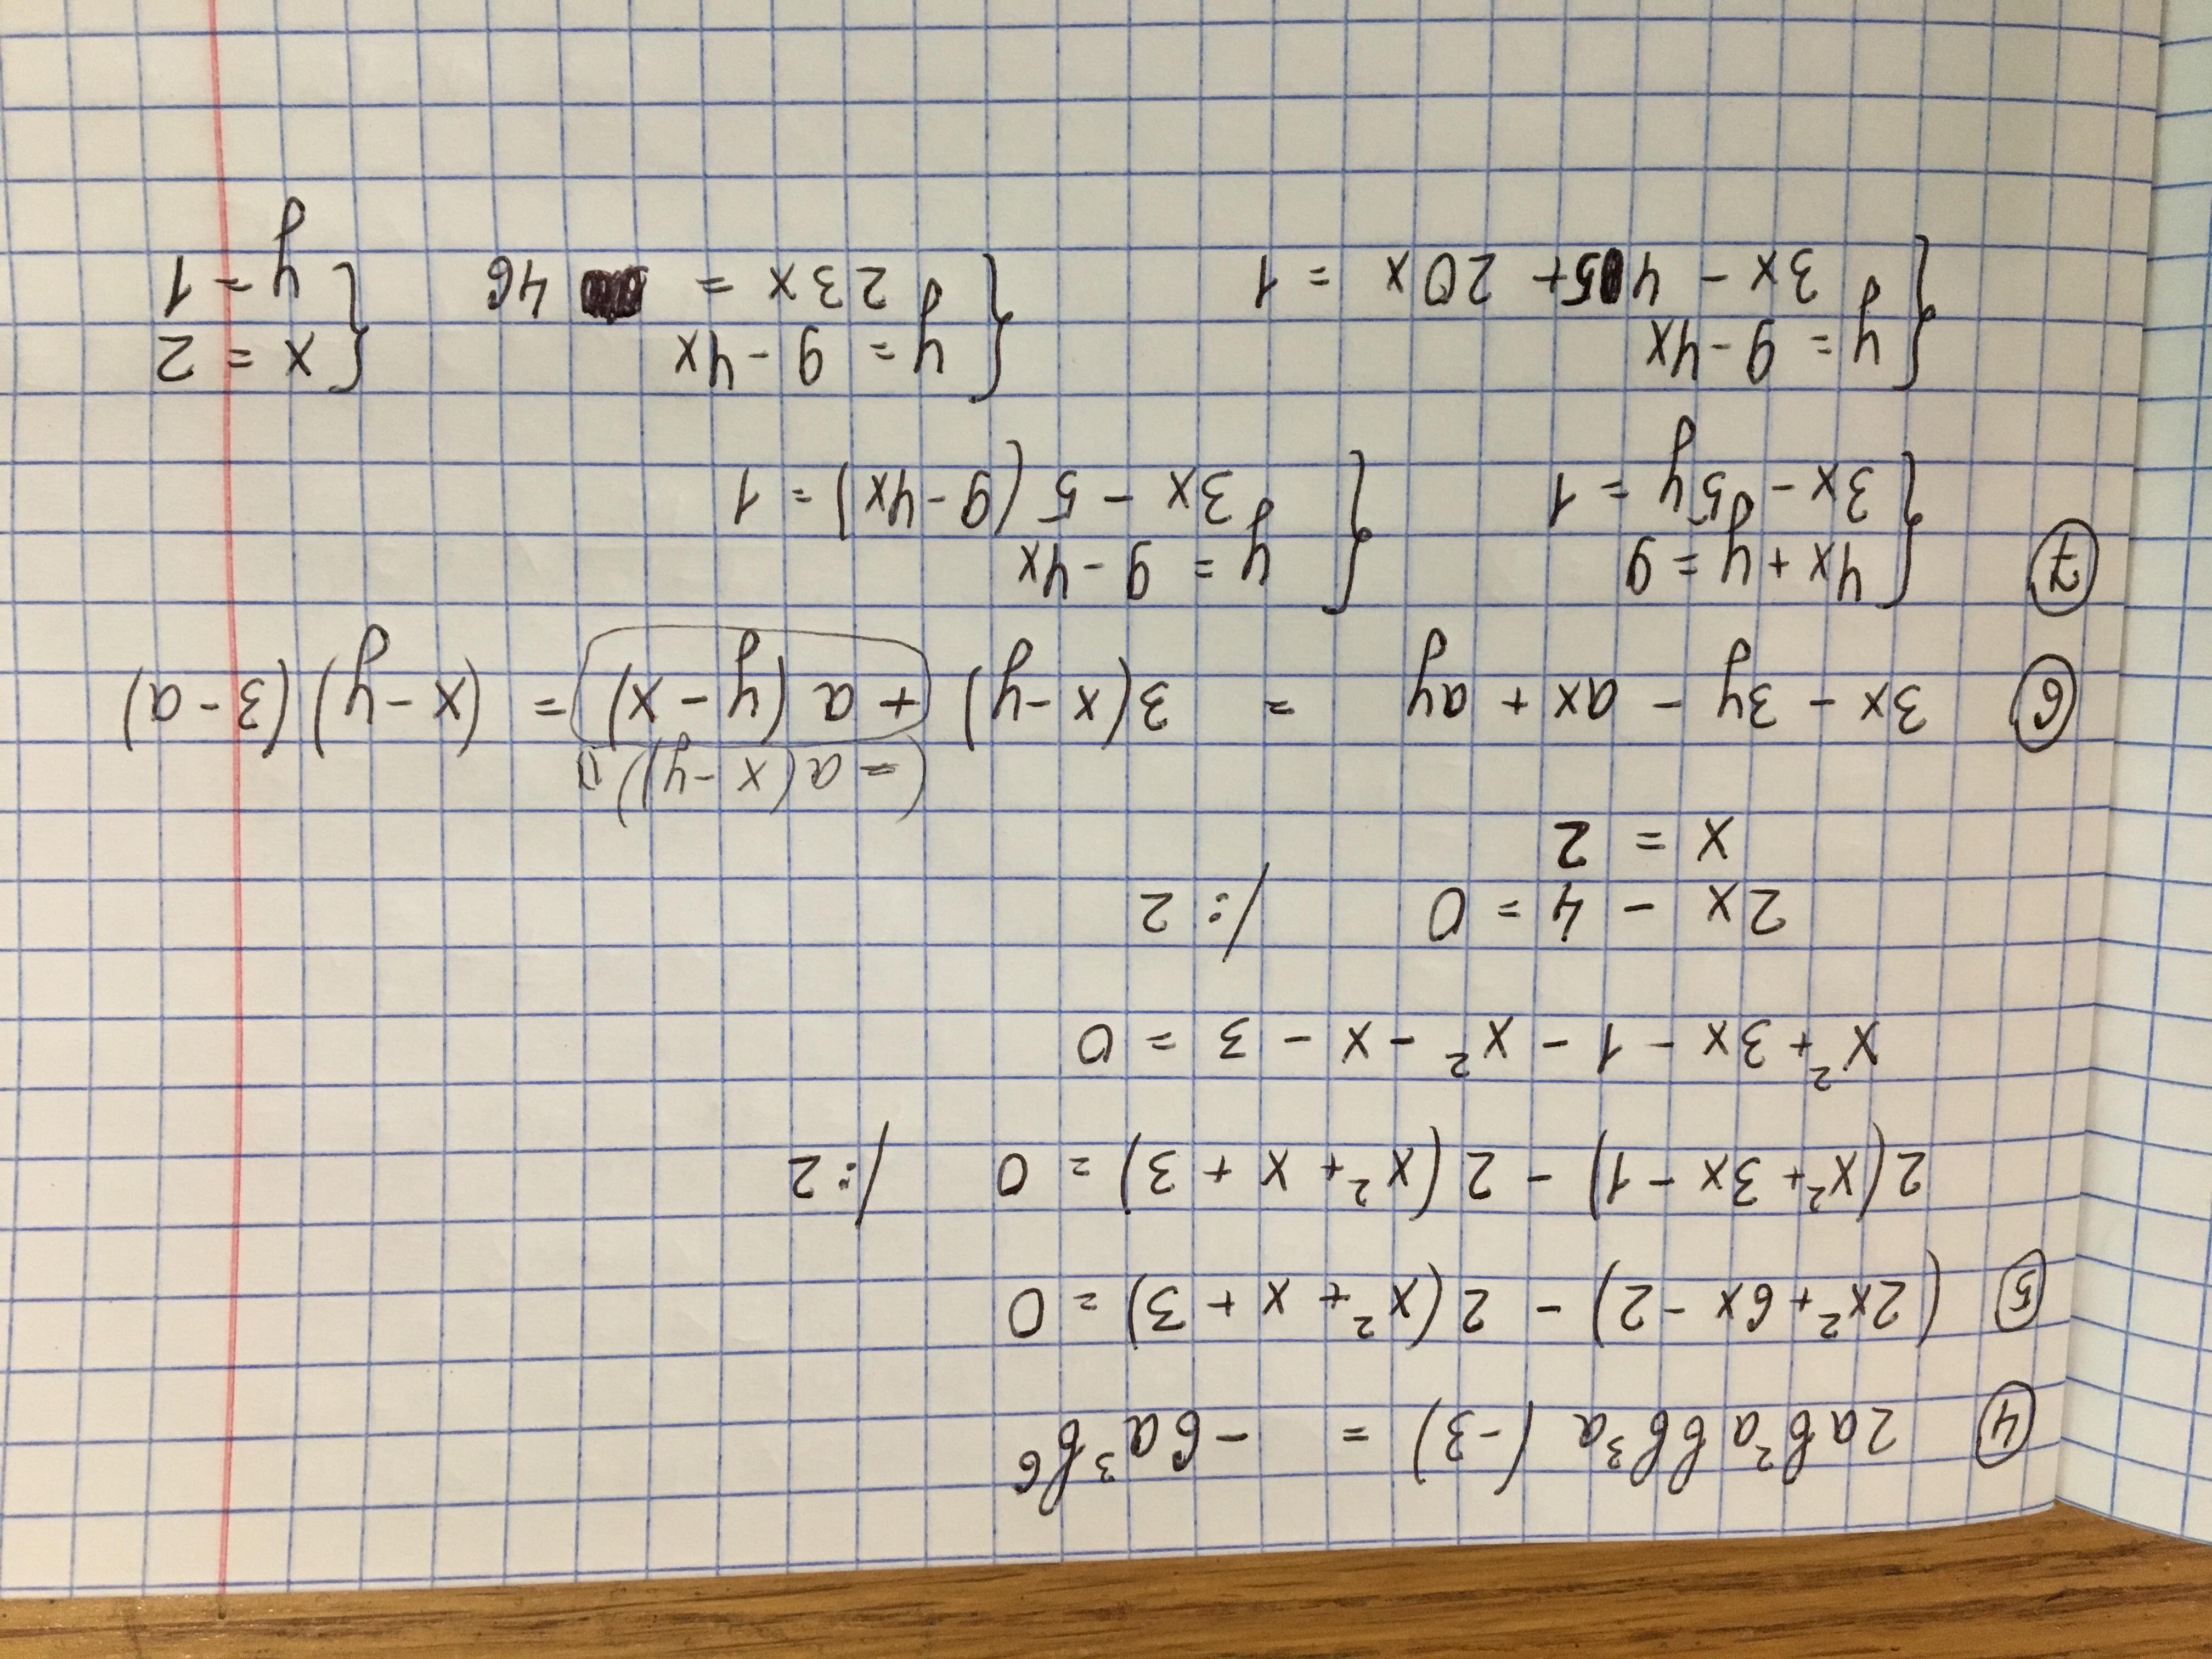 ④ 2ab²abb³a (-3) = -6a³b⁶
⑤ (2x²+6x-2) - 2(x²+x+3) = 0
2(x²+3x-1) - 2(x²+x+3) = 0 /:2
x²+3x-1-x²-x-3 = 0
2x - 4 = 0 /:2
x = 2
(=a(x-y))
⑥ 3x - 3y - ax + ay = 3(x-y) + a(y-x) = (x-y)(3-a)
⑦ { 4x+y=9 { y=9-4x
3x-5y=1 3x-5(9-4x)=1
{ y=9-4x { y=9-4x { x=2
3x-45+20x=1 23x=46 y=1